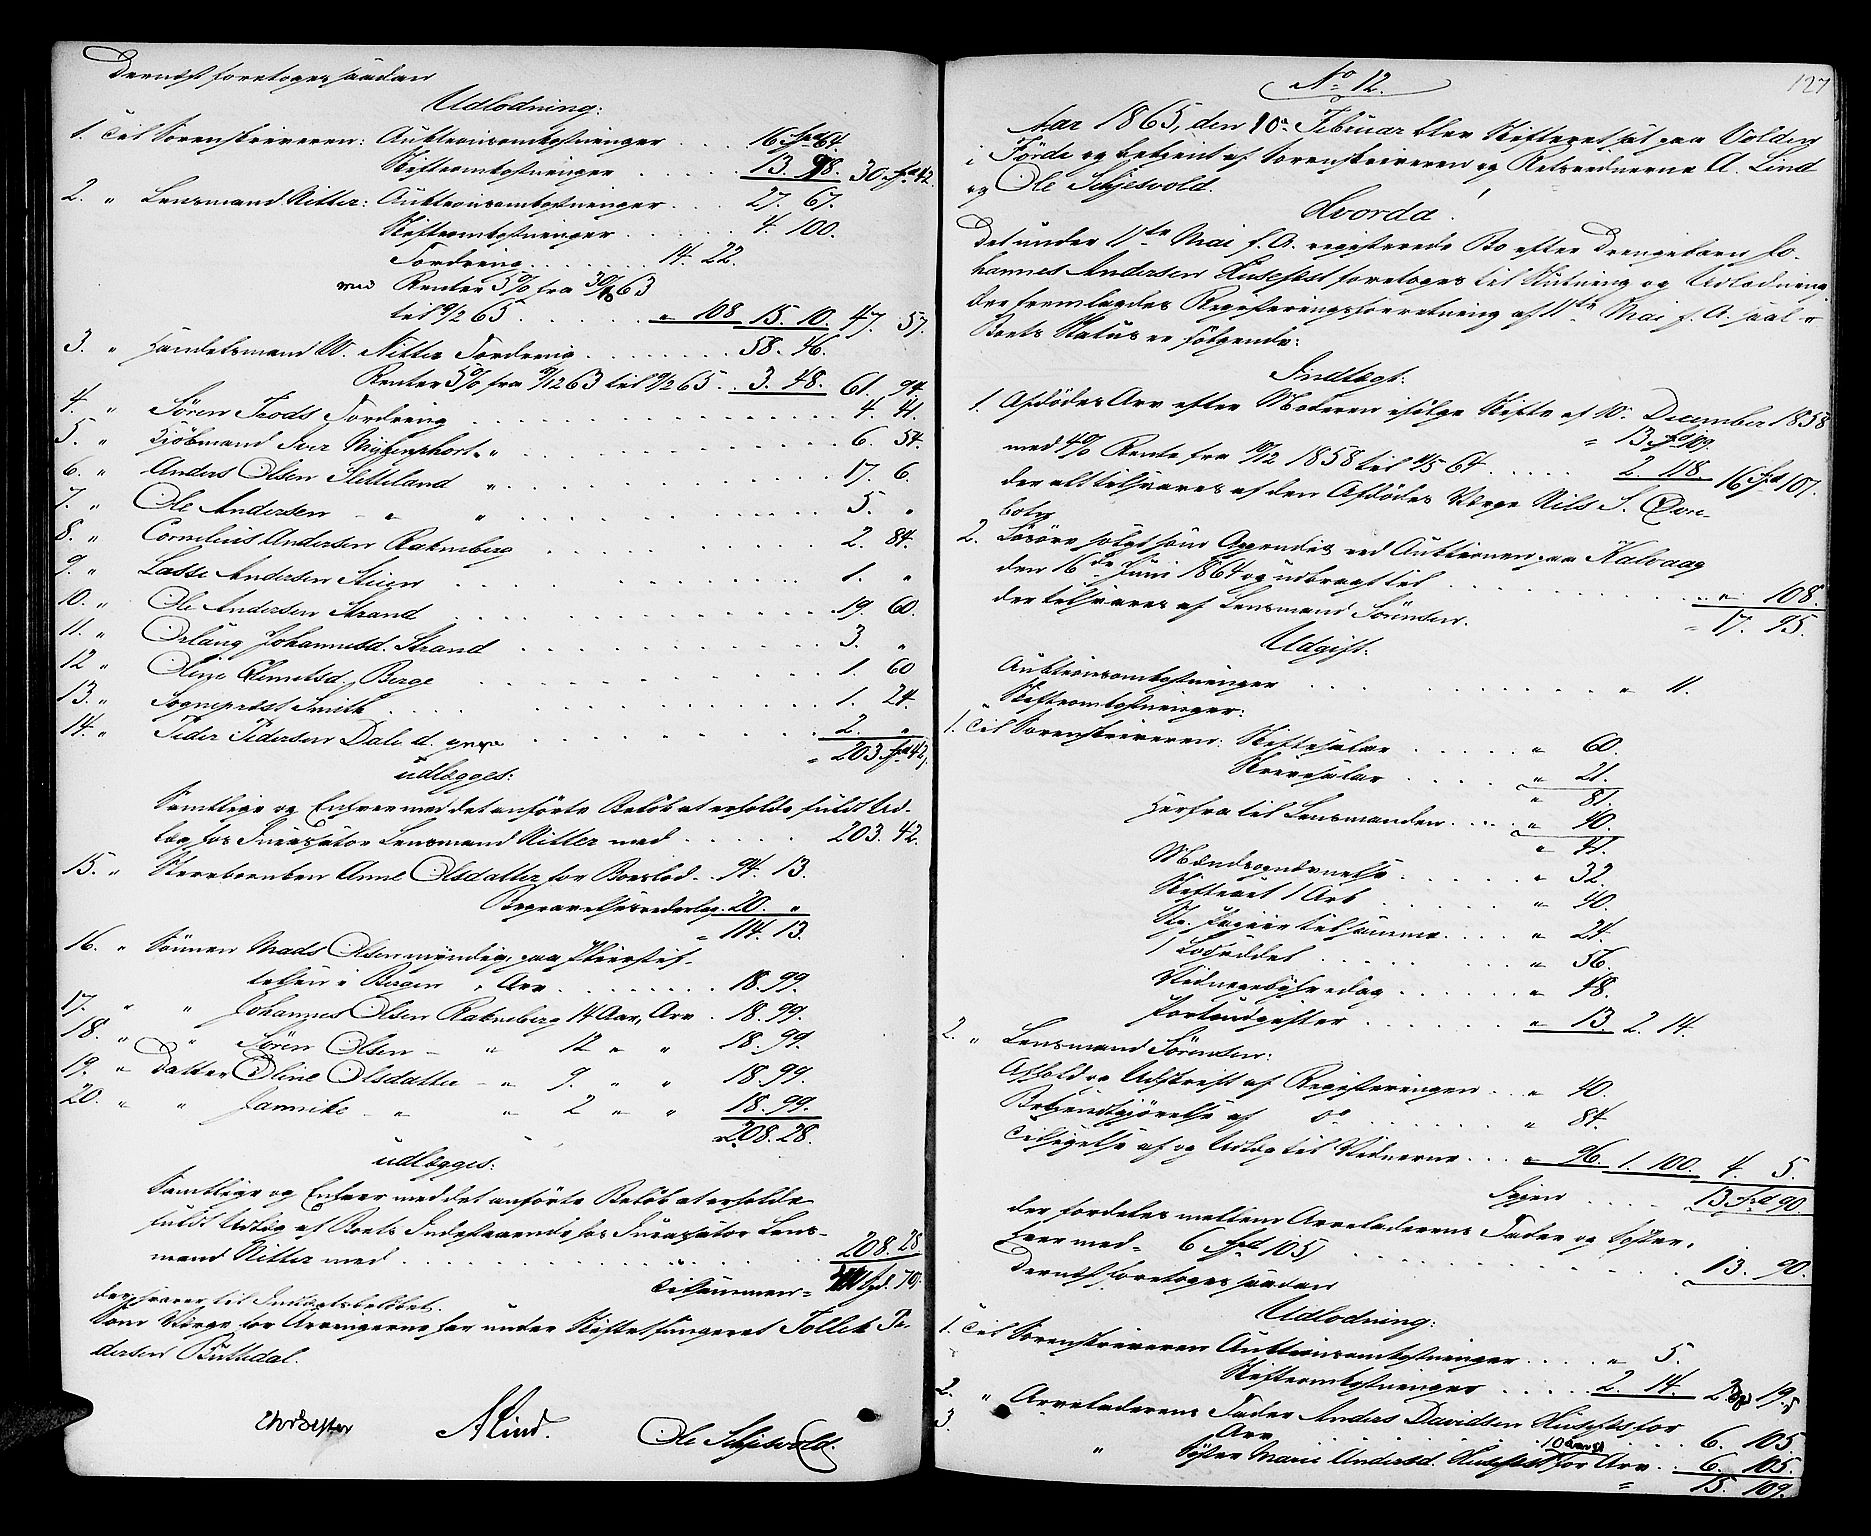 Dernæst foretoges saadan
Udlodning:
1. Til Sorenskriveren: Auktionsomkostninger . . . 16 spd 64.
Skifteomkostninger . . . . . 13. 98. 30 spd 42
2. " Lensmand Nitter: Auktionsomkostninger . . . 27. 67.
Skifteomkostninger . . . . . 4. 100.
Fordring . . . . . . 14. 22.
med Renter 5% fra 30/10 63
til 9/2 65 . . . . . . " 108 15. 10. 47. 57.
3. " Handelsmand W. Nitter Fordring . . . . . . . 58. 46.
Renter 5% fra 9/12 63 til 9/2 65 . . 3. 48. 61. 94.
4. " Sören Fordring . . . . . . . . . . . 4. 41.
5. " Kjöbmand Iver " . . . . . . . . . . 6. 54.
6. " Anders Olsen Sletteland " . . . . . . . . . . 17. 6.
7. " Ole Andersen - " - " . . . . . . . . . . 5. "
8. " Cornelius Andersen Rakneberg . . . . . . . . . 2. 84.
9. " Lasse Andersen Steien . . . . . . . . . . 1. "
10. " Ole Andersen Strand . . . . . . . . . . 19. 60.
11. " Johannesd. Strand . . . . . . . . . . 3. "
12 " Oline Clemetsd. Berge . . . . . . . . . . 1. 60
13. " Sogneprest Smith . . . . . . . . . . 1. 24.
14. " Peder Pedersen Dale d. yngre . . . . . . . . . 2. "
" 203 spd 42,
udlægges:
Samtlige og Enhver med det anförte Belöb at erholde fuldt Ud-
læg hos Inkassator Lensmand Nitter med . . . . . 203. 42.
15. " Stervboenken Anne Olsdatter for Boeslod . . 94. 13.
Begravelsesvederlag . 20. "
" 114. 13.
16. " Sönnen Mads Olsen myndig, paa
telsen i Bergen, Arv . . . . . . . 18. 99.
17. " " Johannes Olsen Rakneberg 14 Aar, Arv . 18. 99.
18. " " Sören Olsen - " 12 " " 18. 99.
19. " Datter Oline Olsdatter - " 9. " " 18. 99.
20. " " Jannike - " " 2 " " 18. 99.
208. 28.
udlægges:
Samtlige og Enhver med det anförte Belöb at erholde
fuldt Udlæg af Boets Indestaaende hos Inkassator Lens-
mand Nitter med . . . . . . . . . . 208. 28
Tilsammen = 411 spd. 70.
der svarer til Indtægtsbelöbet.
Som Værge for Arvingerne har under Skiftet fungeret Tollek Pe-
dersen Buttedal.
A Lind. Ole Schjesvold.
127
No 12.
Aar 1865, den 10de Februar blev Skifteret sat paa Volden
i Förde og betjent af Sorenskriveren og Retsvidnerne A. Lind
og Ole Schjesvold.
Hvorda!
Det under 11te Mai f. A. registerede Bo efter Drengebarn Jo-
hannes Andersen Husefest foretoges til Slutning og Udlodning.
Der fremlagdes Registeringsforretning af 11te Mai f. A.
Boets Status er fölgende:
Indtægt:
1. Afdödes Arv efter Moderen ifölge Skifte af 10. December 1858
" 13 spd 109.
med 4% Rente fra 10/12 1858 til 11/5 64 . . . . . 2. 118. 16 spd 107.
der alt tilsvares af den Afdödes Værge Nils S. Övre-
botn
2. Lösöre solgt som Appendix ved Auktionen paa Kalvaag
den 16de Juni 1864 og udbragt til . . . . . . . . . . " 108.
der tilsvares af Lensmand Sörensen. " 17. 95.
Udgift:
Auktionsomkostninger . . . . . . . . . . . . . " 11.
Skifteomkostninger:
1. Til Sorenskriveren: Skiftesalær . . . . . " 60.
Skrivesalær . . . . " 21.
" 81.
Herfra til Lensmanden . . . . " 40.
" 41.
Mændsopnævnelse . . . . . " 32.
Skifteret 1 Ark . . . . . . " 40.
St. Papiir til samme . . . . " 24.
1 Lodseddel . . . . . . . " 56.
Vidnegebyhr idag . . . . . " 48.
Portoudgifter . . . . . . " 13. 2. 14.
2. " Lensmand Sörensen:
Afhold og Udskrift af Registeringen . . " 40.
Bekjendtgjörelse af do . . . . . . " 84.
Tilsigelse af og Udlæg til Vidnerne . . . " 96. 1. 100. 4. 5.
Igjen . . . . . 13 spd 90.
der fordeles mellem Arveladerens Fader og Söster,
hver med = 6 spd 105 . . . . . . . . . . . 13. 90.
Dernæst foretoges saadan
Udlodning:
1. Til Sorenskriveren Auktionsomkostninger . . . . " 5.
Skifteomkostninger . . . . . 2. 14. 2 spd 19.
2. " Arveladerens Fader Anders Davidsen Husefest for
Arv . . . . . . . . . . . . . 6. 105.
3. " " Söster Marie Andersd. Husefest for Arv . . 6. 105.
" 15. 109.